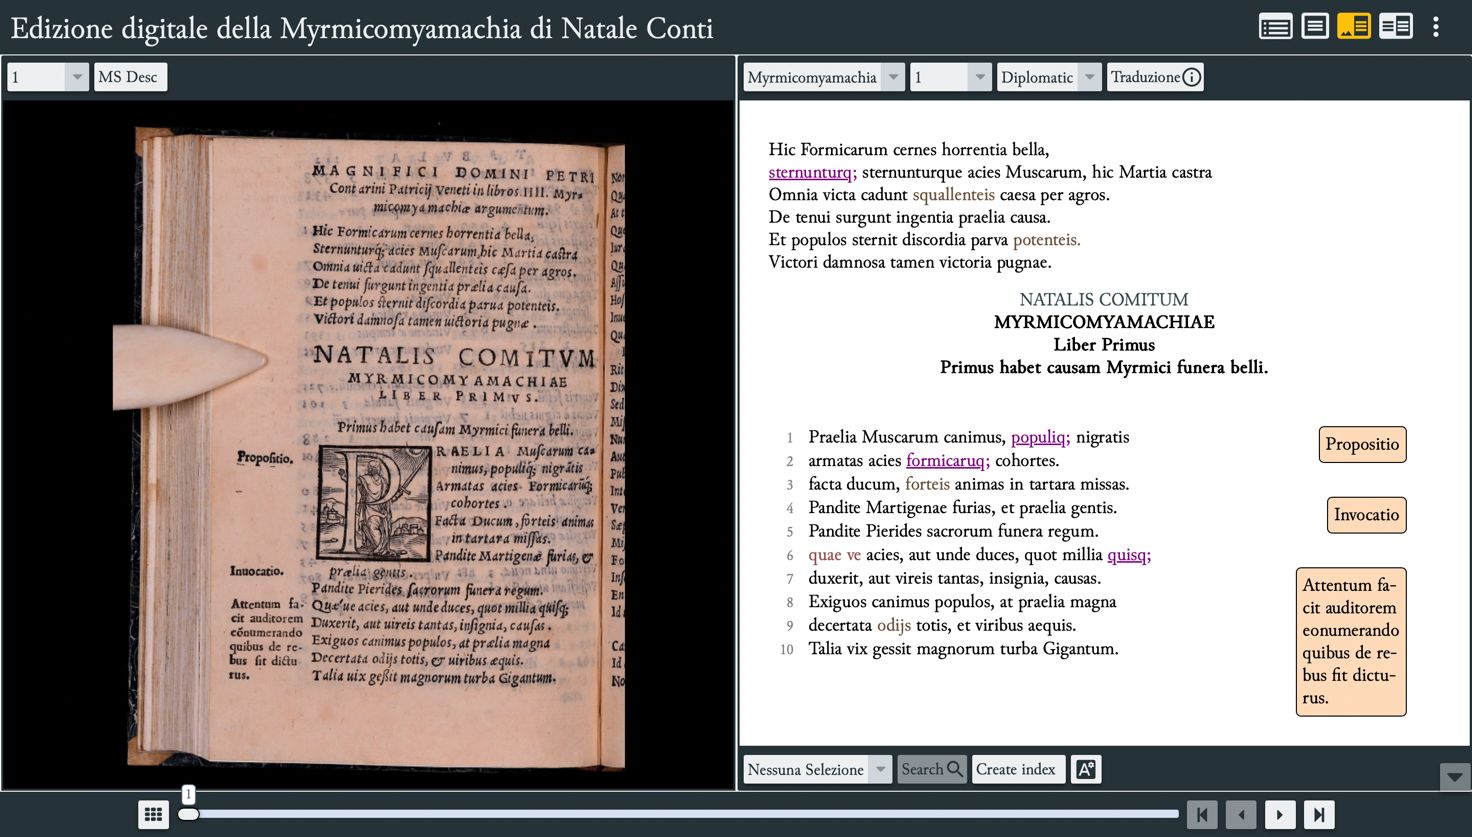 Edizione digitale della Myrmicomyamachia di Natale Conti
1
MS Desc
MAGNIFICI DOMINI PETRI
Contarini Patricij Veneti in libros IIII. Myr-
micomyamachiæ argumentum.
Hic Formicarum cernes horrentia bella,
Sternunturq; acies Muscarum, hic Martia castra
Omnia uicta cadunt squallenteis cæsa per agros.
De tenui surgunt ingentia prælia causa.
Et populos sternit discordia parua potenteis.
Victori damnosa tamen uictoria pugnæ.
NATALIS COMITVM
MYRMICOMYAMACHIAE
LIBER PRIMVS.
Primus habet causam Myrmici funera belli.
Propositio.
PRAELIA Muscarum ca-
nimus, populiq; nigratis
Armatas acies Formicarūq;
cohortes.
Facta Ducum, forteis animas
in tartara missas.
Pandite Martigenæ furias, &
prælia gentis.
Inuocatio.
Pandite Pierides sacrorum funera regum.
Attentum fa-
cit auditorem
eōnumerando
quibus de re-
bus sit dictu-
rus.
Quæ'ue acies, aut unde duces, quot millia quisq;
Duxerit, aut uireis tantas, insignia, causas.
Exiguos canimus populos, at prælia magna
Decertata odijs totis, & uiribus æquis.
Talia uix gessit magnorum turba Gigantum.
Myrmicomyamachia
1
Diplomatic
Traduzione
Hic Formicarum cernes horrentia bella,
sternunturq; sternunturque acies Muscarum, hic Martia castra
Omnia victa cadunt squallenteis caesa per agros.
De tenui surgunt ingentia praelia causa.
Et populos sternit discordia parva potenteis.
Victori damnosa tamen victoria pugnae.
NATALIS COMITUM
MYRMICOMYAMACHIAE
Liber Primus
Primus habet causam Myrmici funera belli.
1 Praelia Muscarum canimus, populiq; nigratis
2 armatas acies formicaruq; cohortes.
3 facta ducum, forteis animas in tartara missas.
4 Pandite Martigenae furias, et praelia gentis.
5 Pandite Pierides sacrorum funera regum.
6 quae ve acies, aut unde duces, quot millia quisq;
7 duxerit, aut vireis tantas, insignia, causas.
8 Exiguos canimus populos, at praelia magna
9 decertata odijs totis, et viribus aequis.
10 Talia vix gessit magnorum turba Gigantum.
Propositio
Invocatio
Attentum fa-
cit auditorem
eonumerando
quibus de re-
bus fit dictu-
rus.
Nessuna Selezione
Search
Create index
1